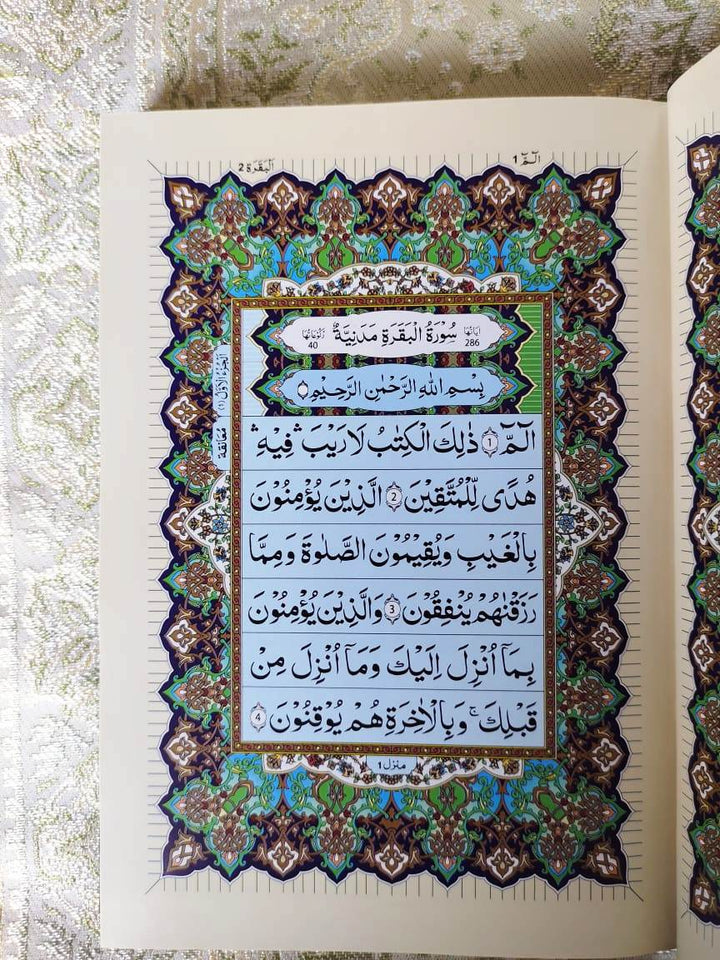 الٓمّٓ 1
اَلْبَقَرَة 2
اٰيَاتُهَا 286
سُوْرَةُ الْبَقَرَةِ مَدَنِيَّةٌ
رُكُوْعَاتُهَا 40
بِسْمِ اللهِ الرَّحْمٰنِ الرَّحِيْمِ
الٓمّٓ ۝1 ذٰلِكَ الْكِتٰبُ لَا رَيْبَ ۛ فِيْهِ ۛ
هُدًى لِّلْمُتَّقِيْنَ ۝2 الَّذِيْنَ يُؤْمِنُوْنَ
بِالْغَيْبِ وَيُقِيْمُوْنَ الصَّلٰوةَ وَمِمَّا
رَزَقْنٰهُمْ يُنْفِقُوْنَ ۝3 وَالَّذِيْنَ يُؤْمِنُوْنَ
بِمَآ اُنْزِلَ اِلَيْكَ وَمَآ اُنْزِلَ مِنْ
قَبْلِكَ ۚ وَبِالْاٰخِرَةِ هُمْ يُوْقِنُوْنَ ۝4
منزل 1
اَلْجُزْءُ الْاَوَّلُ (١)
مُعَانَقَة